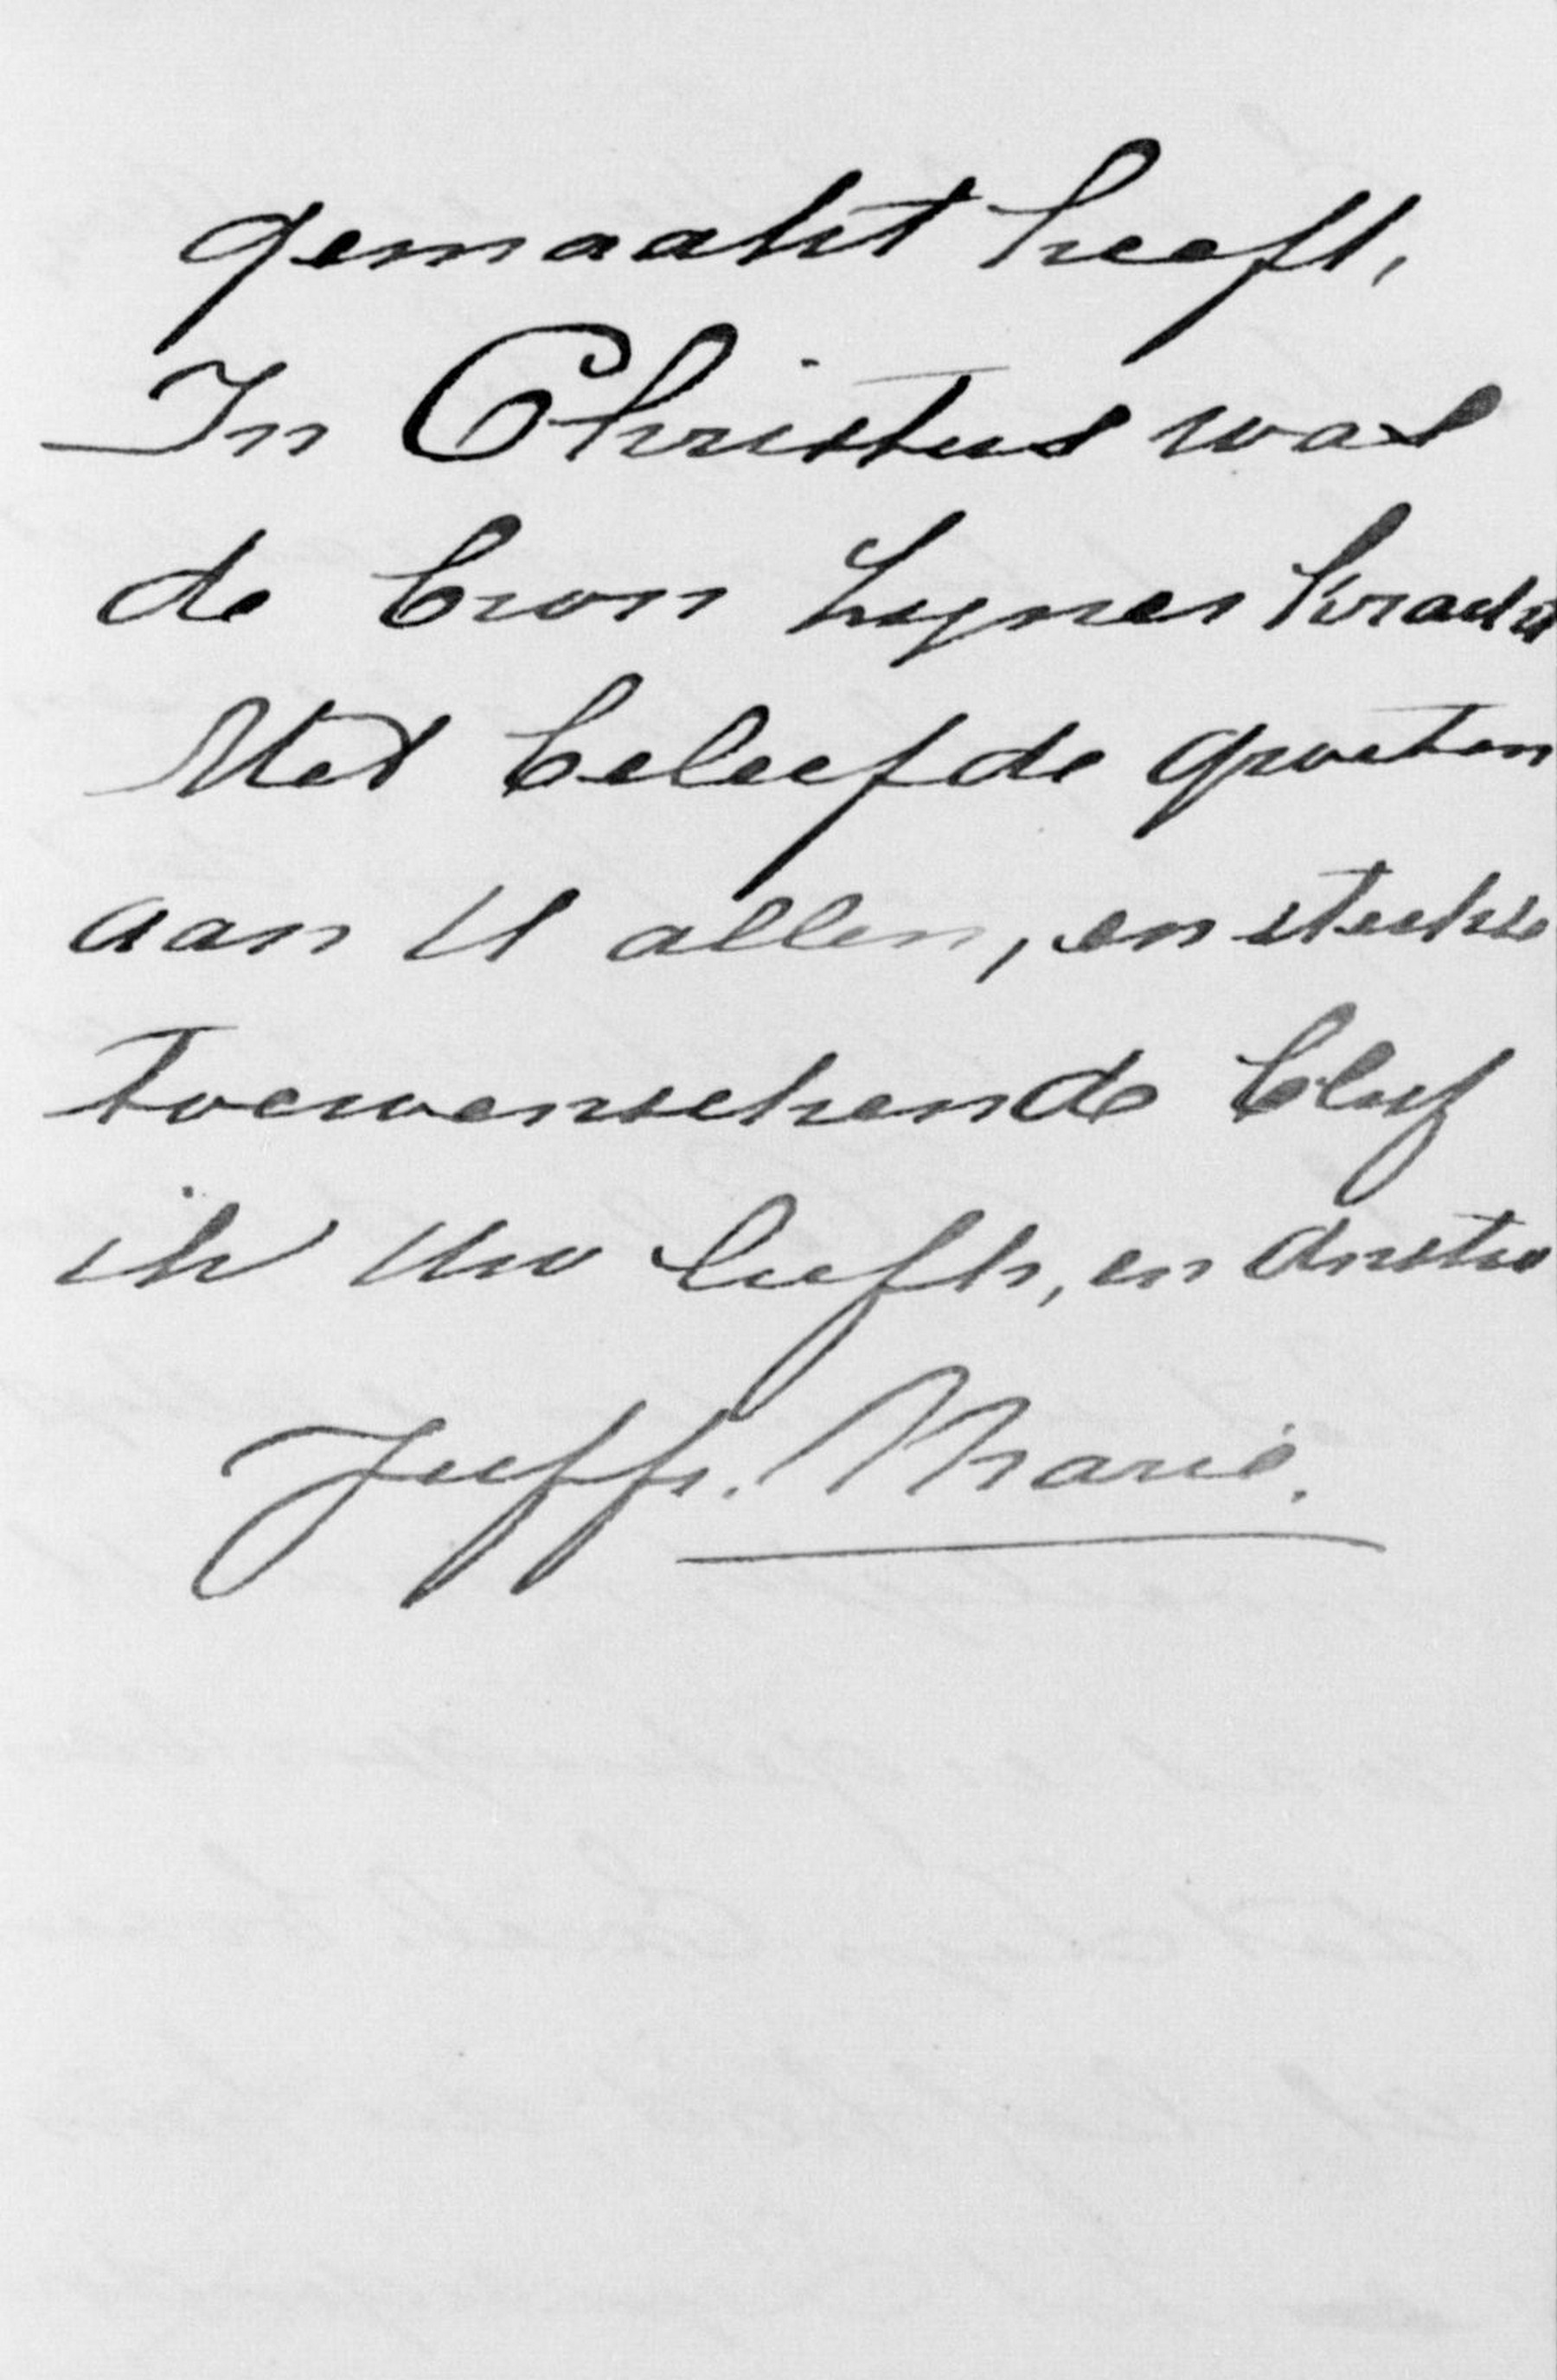 gemaakt heeft,
In Christus was
de bron zijner kracht
Met beleefde groeten
aan U allen, en sterkte
toewenschende blijf
ik Uw liefh, en
Juffr. Marie.